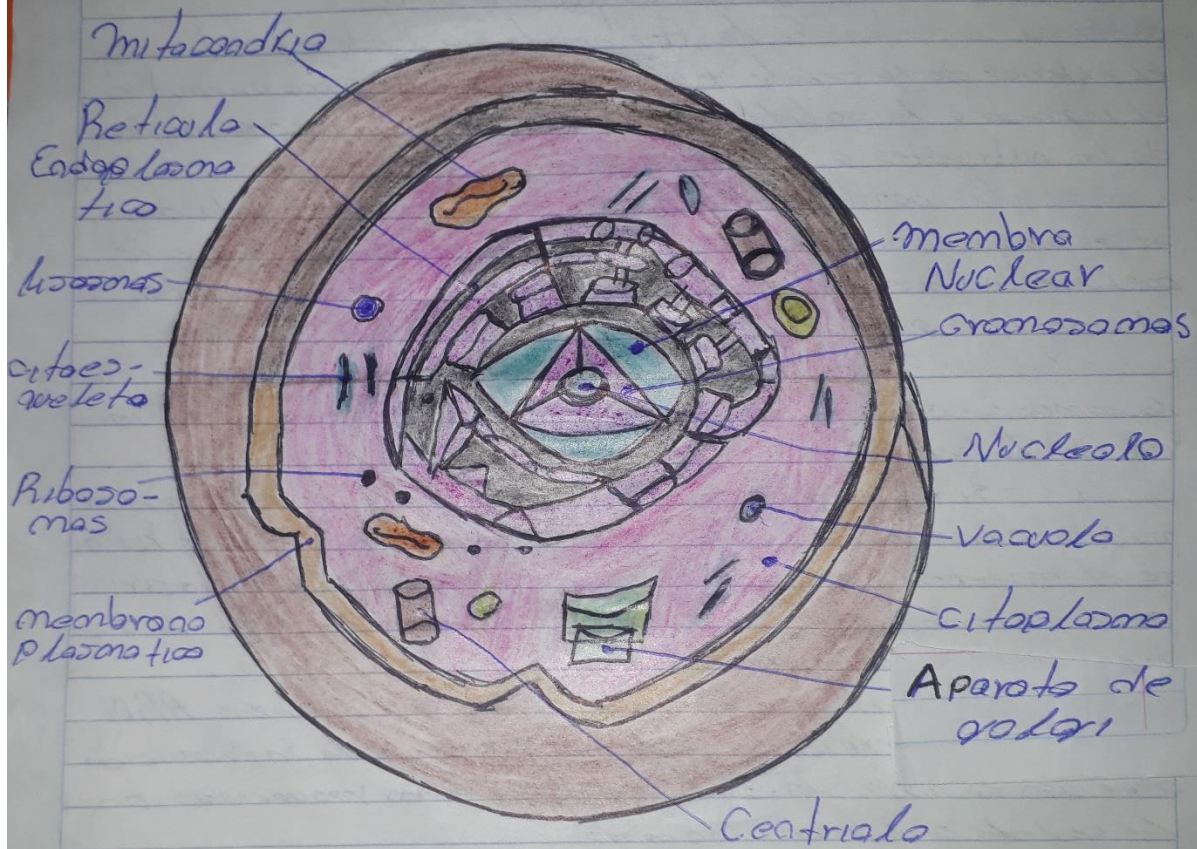 Mitocondria
Reticulo
Endoplasma
tico
Lisosomas
citoes-
queleto
Riboso-
mas
membrana
Plasmatica
membra
Nuclear
Cromosomas
Nucleolo
Vacuola
Citoplasma
Aparato de
golgi
Centriolo